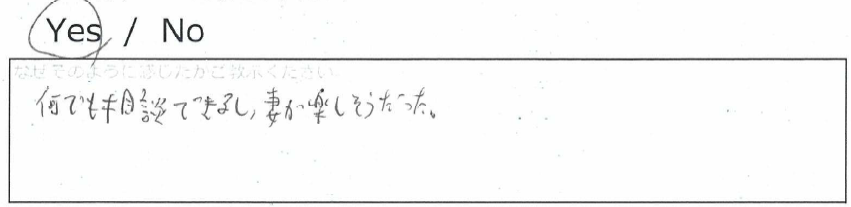 Yes / No
なぜそのように感じたかご教示ください。
何でも相談できるし、妻が楽しそうだった。